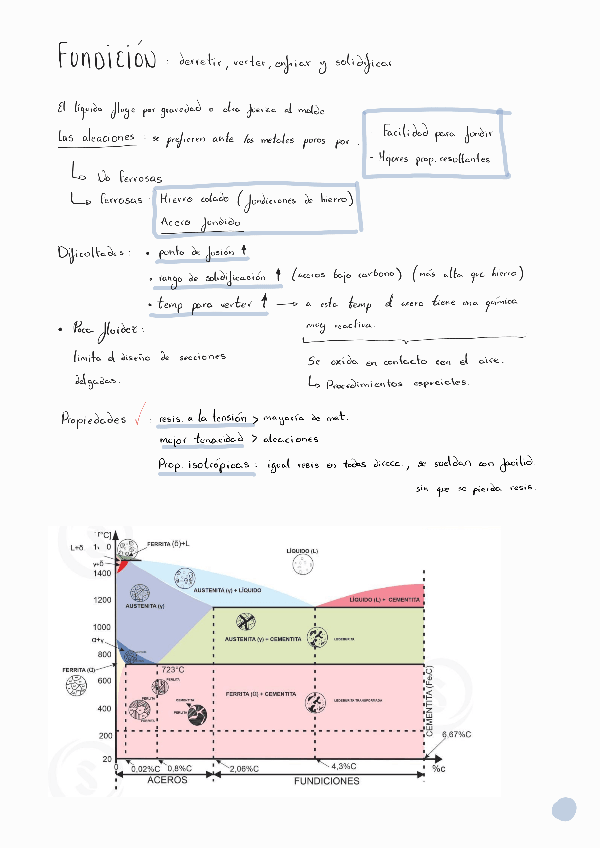 FUNDICIÓN : derretir, verter, enfriar y solidificar
El líquido fluye por gravedad o otra fuerza al molde
Las aleaciones : se prefieren ante los metales puros por :
Facilidad para fundir
- Mejores prop. resultantes
↳ No ferrosas
↳ ferrosas : Hierro colado (fundiciones de hierro)
Acero fundido
Dificultades : • punto de fusión ↑
• rango de solidificación ↑ (aceros bajo carbono) (más alta que hierro)
• temp para verter ↑ → a esta temp. el acero tiene una química
muy reactiva.
• Poca fluidez :
limita el diseño de secciones
delgadas.
Se oxida en contacto con el aire.
↳ Procedimientos especiales.
Propiedades ✓ : resis. a la tensión > mayoría de mat.
mejor tenacidad > aleaciones
Prop. isotrópicas : igual resis en todas direcc., se sueldan con facilid.
sin que se pierda resis.
[°C]
FERRITA (δ)+L
L+δ
γ+δ
1400
1200
1000
800
600
400
200
20
LÍQUIDO (L)
AUSTENITA (γ) + LÍQUIDO
AUSTENITA (γ)
LÍQUIDO (L) + CEMENTITA
AUSTENITA (γ) + CEMENTITA
LEDEBURITA
α+γ
FERRITA (α)
723°C
PERLITA
PERLITA
FERRITA
CEMENTITA
PERLITA
FERRITA (α) + CEMENTITA
LEDEBURITA TRANSFORMADA
CEMENTITA (Fe₃C)
6,67%C
0
0,02%C
0,8%C
2,06%C
4,3%C
%c
ACEROS
FUNDICIONES